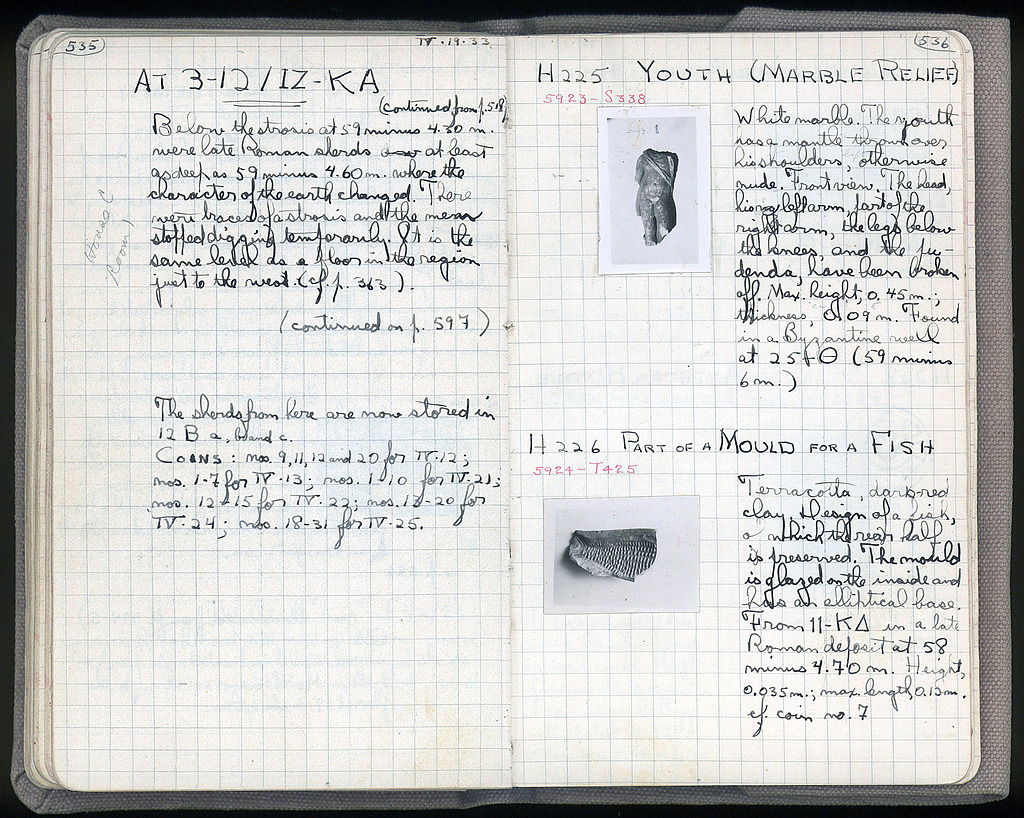 535
IV·19·33
AT 3-12/IZ-KA
(continued from p. 518)
Below the strosis at 59 minus 4.30 m.
were late Roman sherds at least
as deep as 59 minus 4.60 m. where the
character of the earth changed. There
were traces of a strosis and the men
stopped digging temporarily. It is the
same level as a floor in the region
just to the west. (cf. p. 363).
House C
Room 1
(continued on p. 597)
The sherds from here are now stored in
12 B a, b and c.
COINS: nos. 9, 11, 12 and 20 for IV·12;
nos. 1-7 for IV·13; nos. 1-10 for IV·21;
nos. 12-15 for IV·22; nos. 13-20 for
IV·24; nos. 18-31 for IV·25.
536
H 225 YOUTH (MARBLE RELIEF)
5923-S338
White marble. The youth
has a mantle thrown over
his shoulders, otherwise
nude. Front view. The head,
his left arm, part of the
right arm, the legs below
the knees, and the pu-
denda, have been broken
off. Max. height, 0.45 m.;
thickness, 0.09 m. Found
in a Byzantine well
at 25-Θ (59 minus
6 m.)
H 226 PART OF A MOULD FOR A FISH
5924-T425
Terracotta, dark-red
clay. Design of a fish,
of which the rear half
is preserved. The mould
is glazed on the inside and
has an elliptical base.
From 11-KΔ in a late
Roman deposit at 58
minus 4.70 m. Height,
0.035 m.; max. length, 0.13 m.
cf. coin no. 7